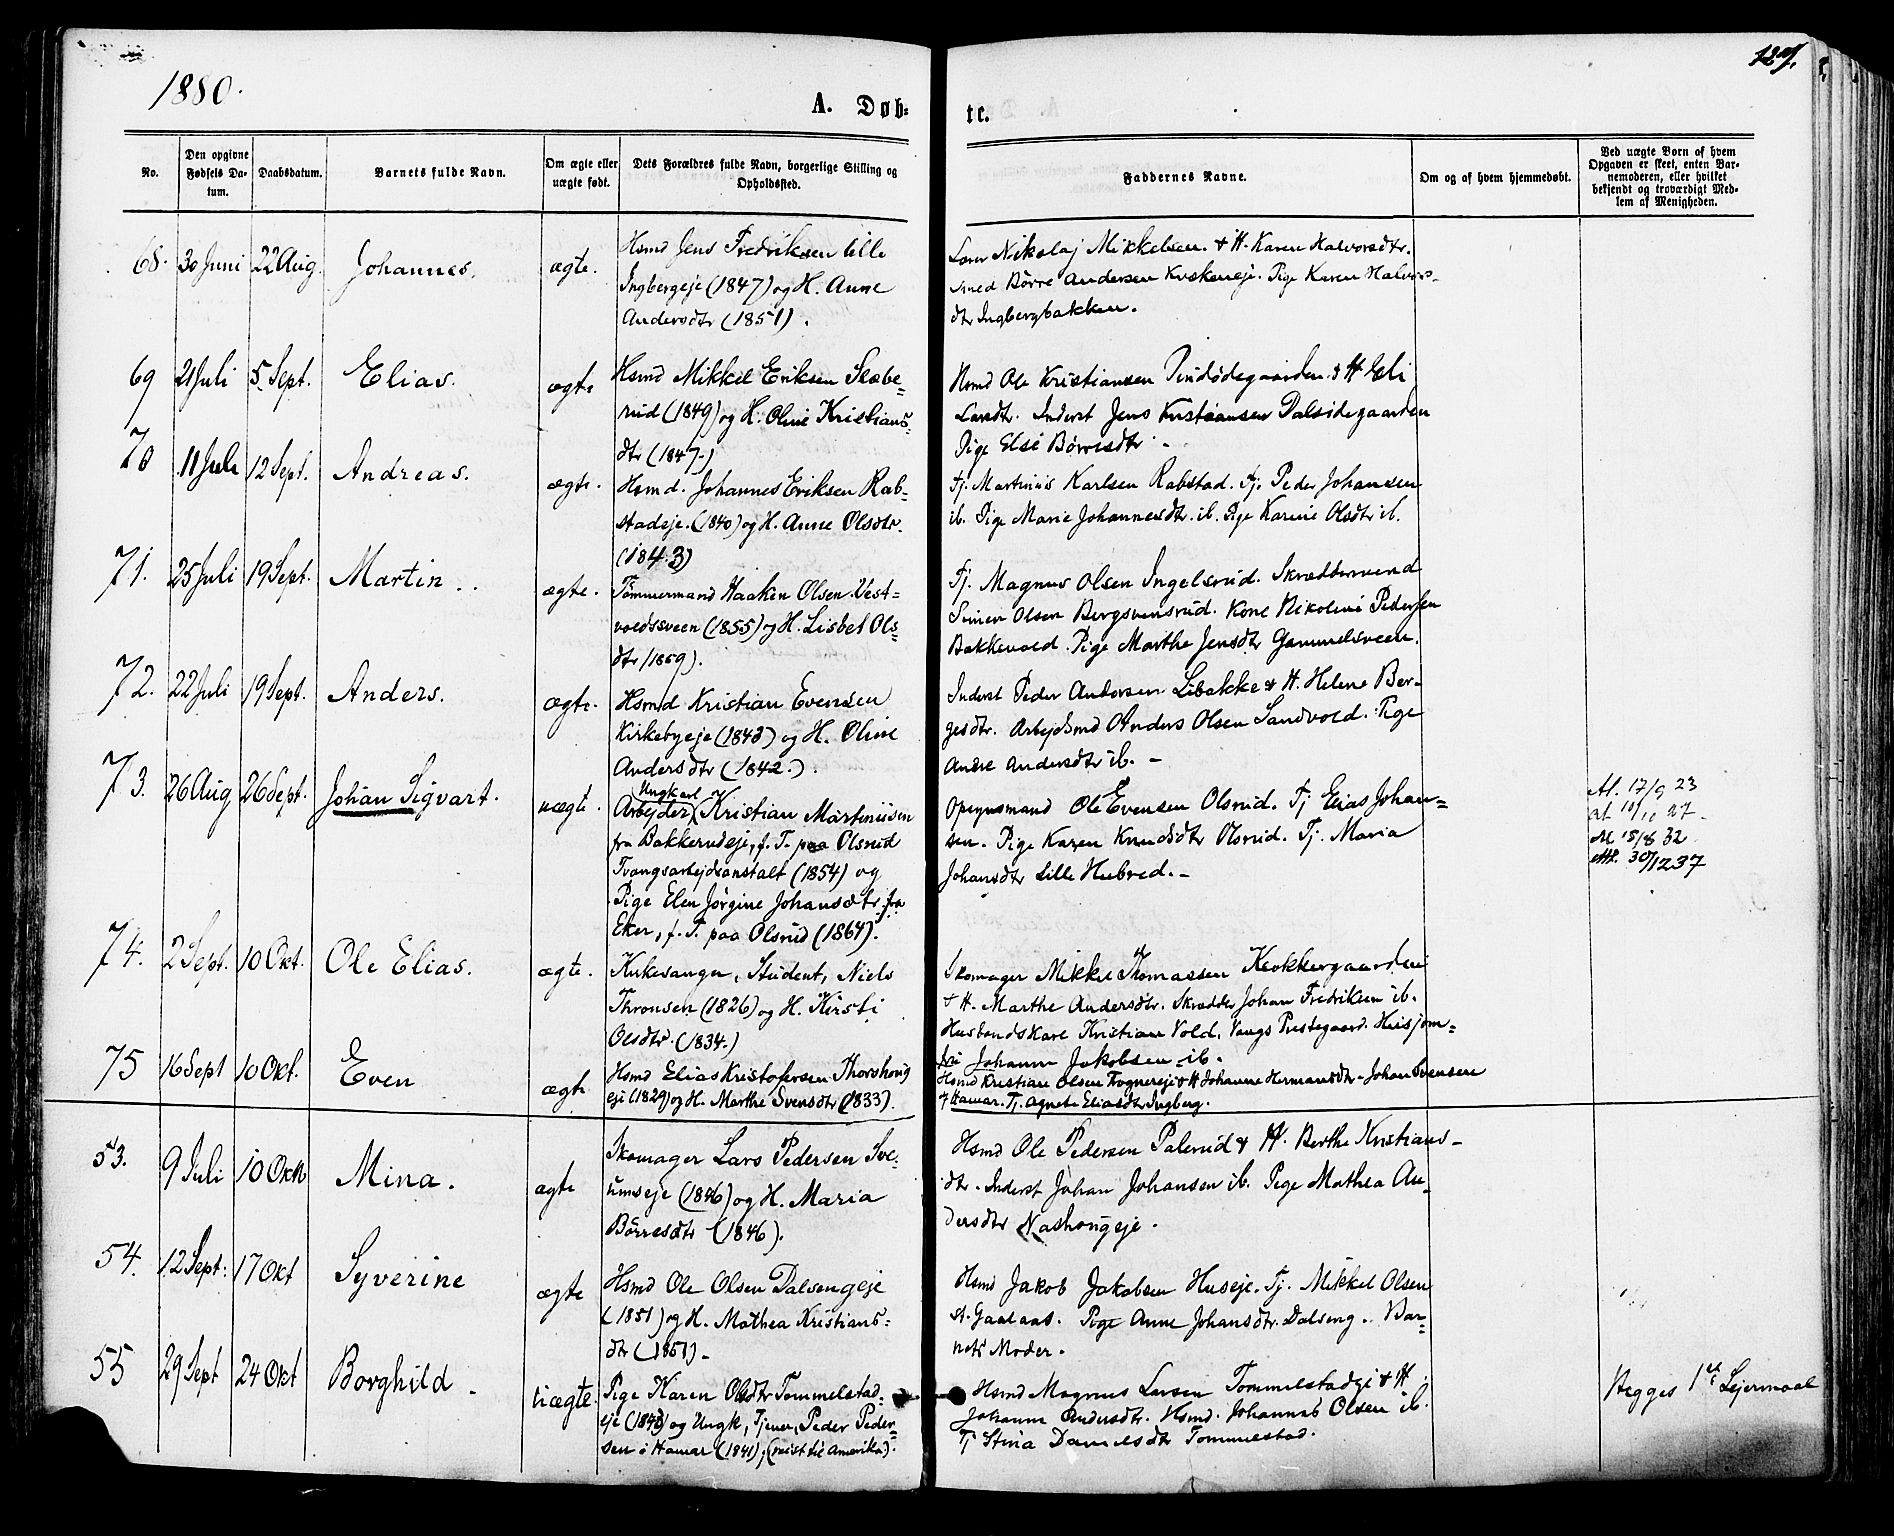 1880.
127.
A. Døb-
te.
No.
Den opgivne
Fødsels Da-
tum.
Daabsdatum.
Barnets fulde Navn.
Om ægte eller
uægte født.
Dets Forældres fulde Navn, borgerlige Stilling og
Opholdssted.
Faddernes Navne.
Om og af hvem hjemmedøbt.
Ved uægte Born af hvem
Opgaven er skeet, enten Bar-
nemoderen, eller hvilket
bekjendt og troværdigt Med-
lem af Menigheden.
68. 30 Juni 22 Aug. Johannes. ægte.
Hsmd Jens Fredriksen lille
Ingbergeje (1847) og H. Anne
Andersdtr (1851).
Nikolaj Mikkelsen & H. Karen Halvorsdtr.
Smed Börre Andersen Kvekeneje. Pige Karen Halvors-
dtr Ingbergbakken.
69 21 Juli 5. Sept. Elias. ægte
Hsmd Mikkel Eriksen Skebe-
rud (1849) og H. Oline Kristians-
dtr (1847.)
Hsmd Ole Kristiansen & H Eli
Larsdtr. Inderst Jens Kristiansen Dalsidegaarden
Pige Else Börresdtr. -
70 11 Juli 12 Sept. Andreas. ægte.
Hsmd. Johannes Eriksen Rab-
stadeje. (1840) og H. Anne Olsdtr.
(1843)
Tj. Martinus Karlsen Rabstad. Tj. Peder Johansen
ib. Pige Marie Johannesdtr. ib. Pige Karine Olsdtr ib.
71. 25 Juli 19 Sept. Martin.. ægte.
Tömmermand Haaken Olsen Vest-
voldssveen (1855) og H. Lisbet Ols-
dtr (1859).
Tj. Magnus Olsen Ingelsrud. Skræddersvend
Simen Olsen Bergsvensrud. Kone Nikoline Pedersen
Bakkevold. Pige Marthe Jensdtr Gammelsveen.
72. 22 Juli 19 Sept. Anders. ægte.
Hsmd Kristian Evensen
Kirkebyeje (1843) og H. Oline
Andersdtr (1842.).
Inderst Peder Andersen Libakke & H. Helene Ber-
gesdtr. Arbejdsmd Anders Olsen Sandvold. Pige
Andersdtr ib. -
73. 26 Aug 26 Sept. Johan Sigvart. uægte.
Ungkarl
Arbejder, Kristian Martiniusen
fra Bakkerudeje, f. T. paa Olsrud
Tvangsarbejdsanstalt (1854) og
Pige Elen Jørgine Johansdtr fra
Eker, f. T. paa Olsrud (1864).
Opsynsmand Ole Evensen Olsrud. Tj Elias Johan-
sen. Pige Karen Knudsdtr Olsrud. Tj. Maria
Johansdtr Lille Hubred. -
At. 17/9 23
at 10/10 27
At 15/8 32
Att. 30/12 37
74. 2 Sept. 10 Okt. Ole Elias. ægte.
Kirkesanger, Student, Niels
Thronsen (1826) og H. Kirsti
Olsdtr. (1834.)
Skomager Mikkel Thomassen Klokkergaarden
& H. Marthe Andersdtr. Skrædder Johan Fredriksen ib.
Husbondskarl Kristian Vold, Vangs Prestegaard. Husjom-
fru Johanne Jakobsen ib.
75 16 Sept 10 Okt. Even ægte
Hsmd Elias Kristofersen Thorshoug
eje (1829) og H. Marthe Svensdtr (1833).
Hsmd Kristian Olsen Fognereje & H Johanne Hermansdtr - Johan Svensen
af Hamar. Tj. Agnete Eliasdtr Ingberg.
53. 9 Juli 10 Okt Mina. ægte
Skomager Lars Pedersen Sve-
umseje (1846) og H. Maria
Börresdtr (1846).
Hsmd Ole Pedersen Palerud & H. Berthe Kristians-
dtr. Inderst Johan Johansen ib. Pige Mathea An-
dersdtr Nashougeje.
54. 12 Sept. 17 Okt Syverine ægte
Hsmd Ole Olsen Dalsengeje
(1851) og H. Mathea Kristians-
dtr (1851). -
Hsmd Jakob Jakobsen Huseje. Tj. Mikkel Olsen
st. Gaalaas. Pige Anne Johansdtr. Dalseng. Bar-
nets Moder.
55 29 Sept 24 Okt Borghild. uægte.
Pige Karen Olsdtr Tommelstad-
eje (1843) og Ungk, Tjener, Peder Peder-
sen i Hamar (1841), (reist til Amerika).
Hsmd Magnus Larsen Tommelstadeje & H
Johanne Andersdtr. Hsmd. Johannes Olsen ib.
Tj Stina Danielsdtr Tommelstad.
Begges 1ste Lejermaal